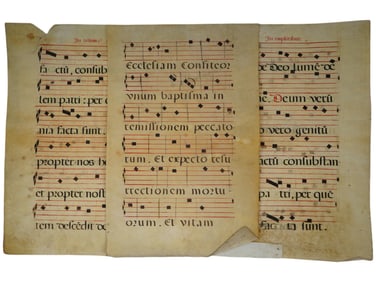 fa ctū, consub
tem patri: per
nia facta sunt.
propter nos h
et propter nost
tem descēdit de
Ecclesiam Confiteor
vnum baptisma in
remissionem peccato
rum. Et expecto resu
rrectionem mortu
orum. Et vitam
Deo lumē de
Deum verū
o vero genitū
factū consubstan
pa tri, per quē
facta sunt.